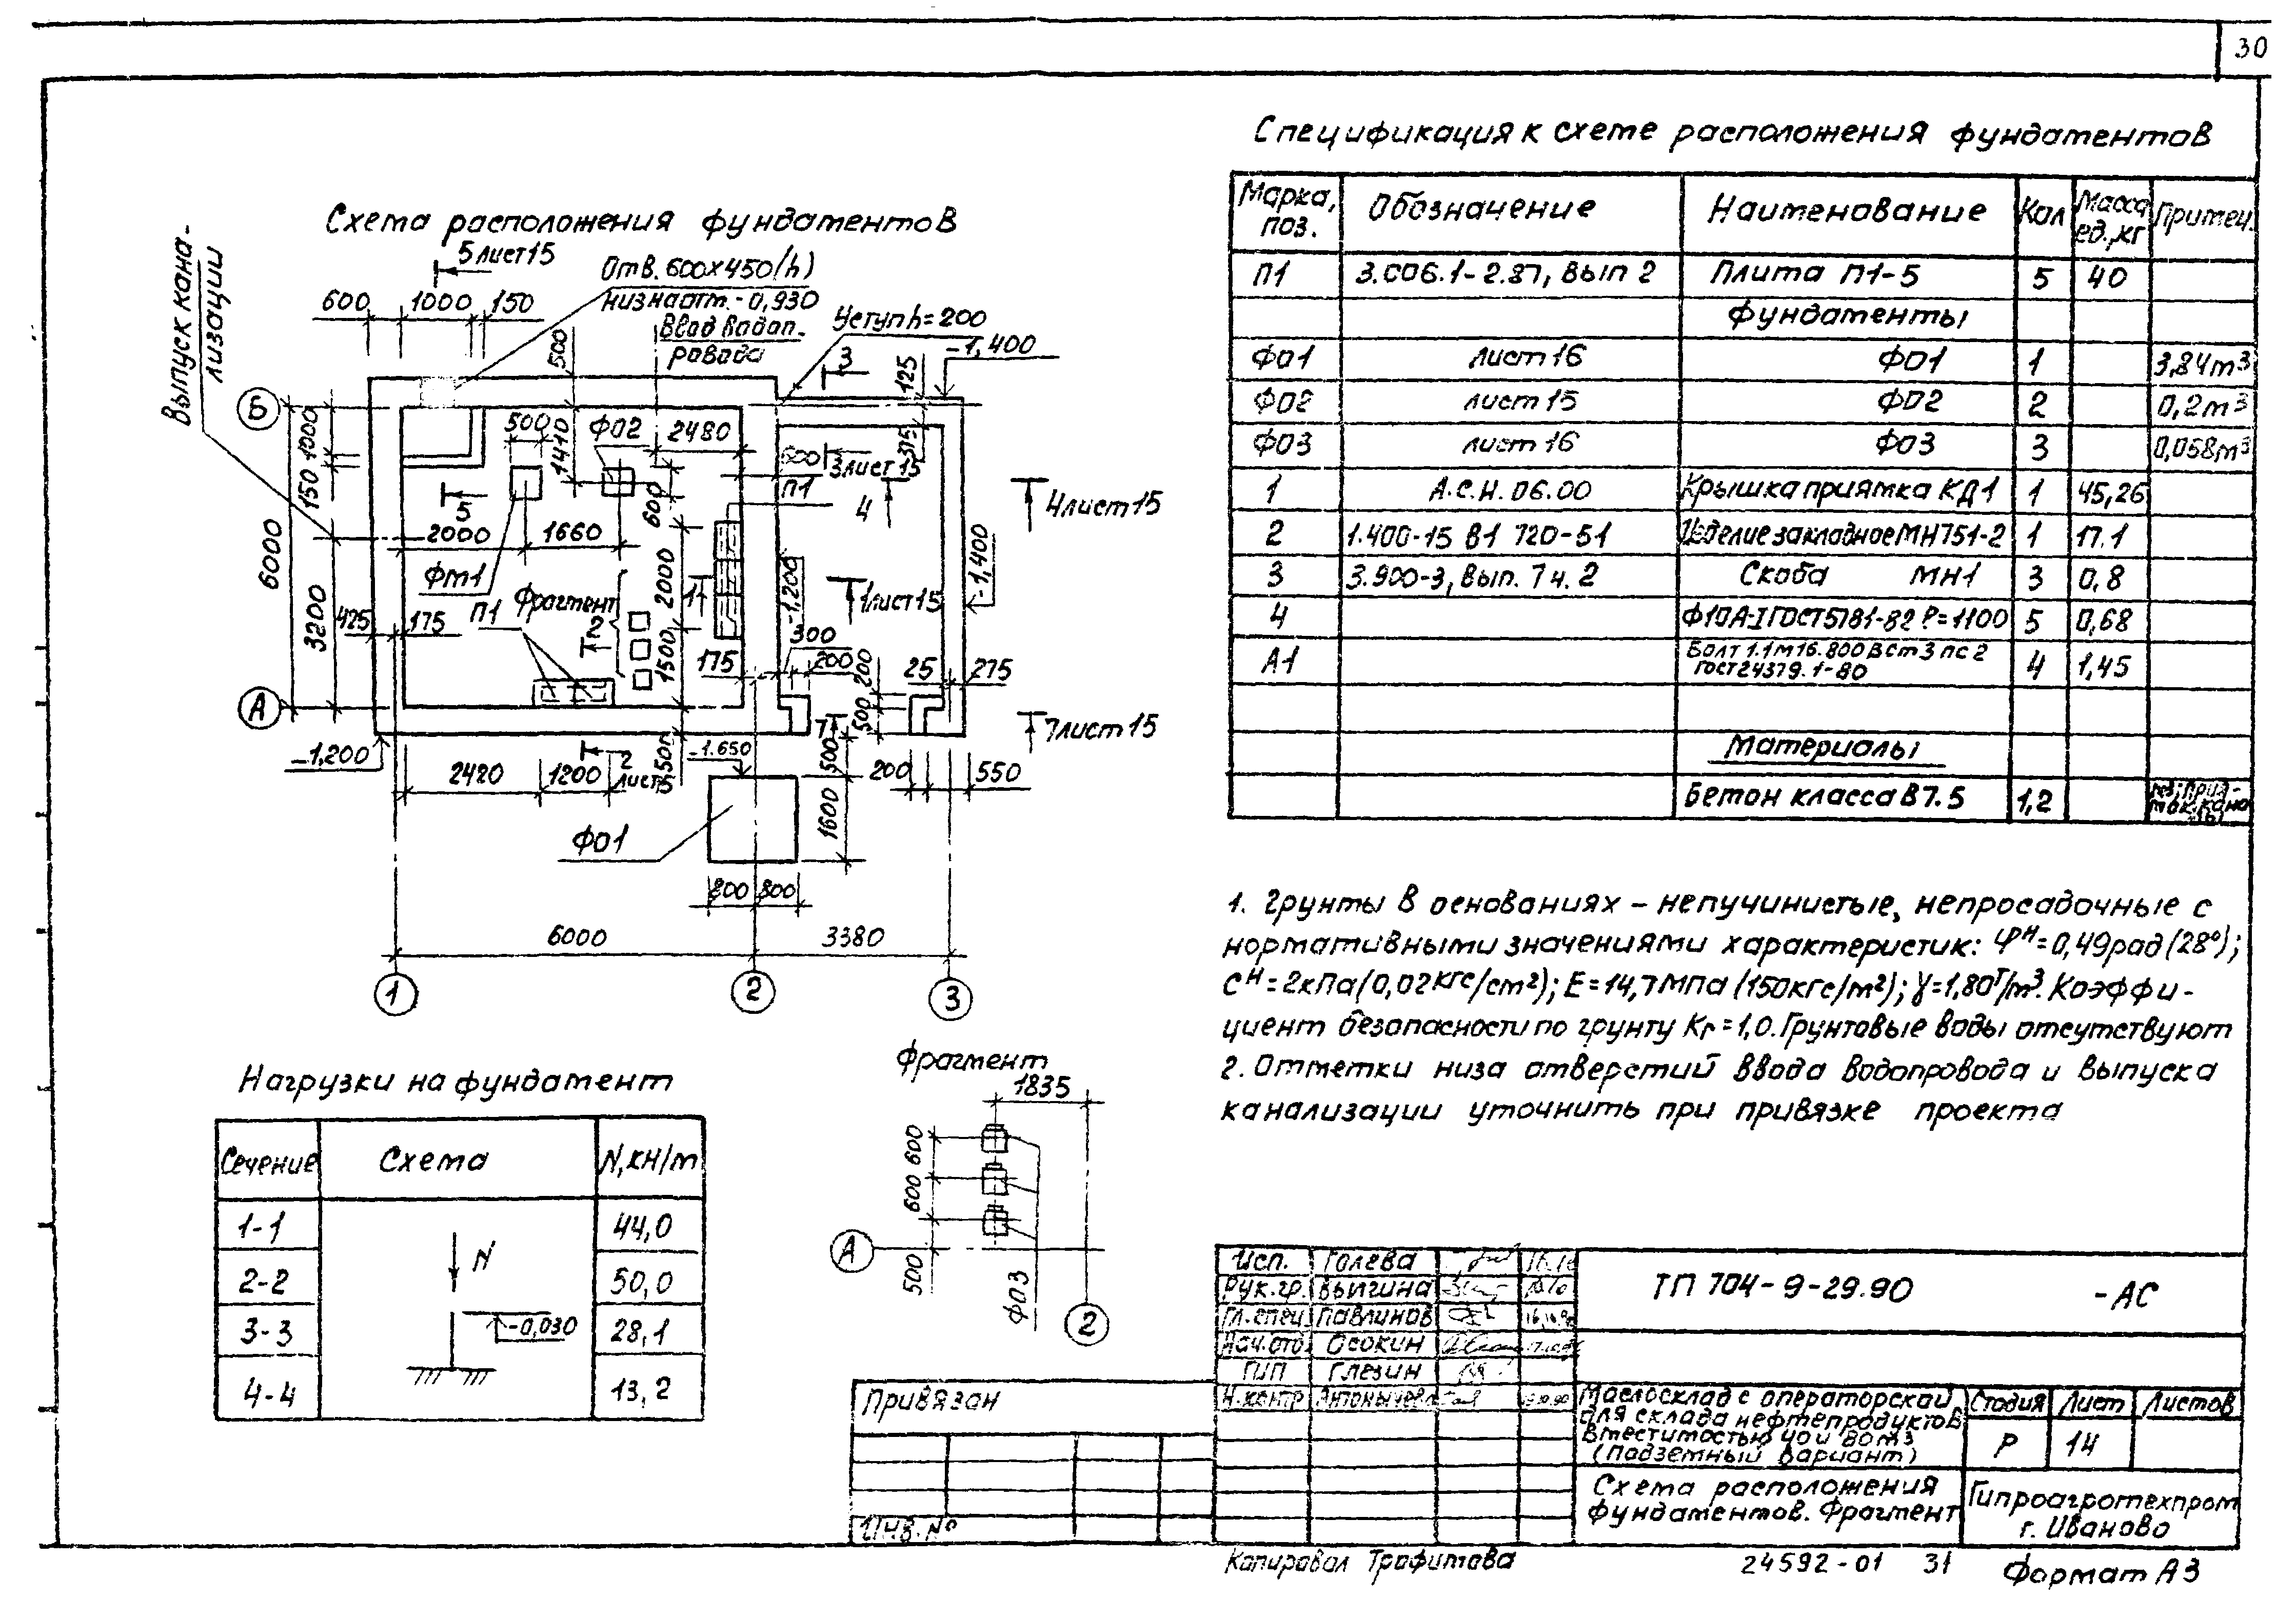 30
Спецификация к схеме расположения фундаментов
Марка, поз. Обозначение Наименование Кол Масса ед.,кг Примеч.
П1 3.006.1-2.87, вып 2 Плита П1-5 5 40
Фундаменты
ФО1 лист 16 ФО1 1 3,84м³
ФО2 лист 15 ФО2 2 0,2м³
ФО3 лист 16 ФО3 3 0,058м³
1 А.С.И.06.00 Крышка приямка КД1 1 45,26
2 1.400-15 В1 720-51 Изделие закладное МН751-2 1 17.1
3 3.900-3, Вып. 7 ч. 2 Скоба МН1 3 0,8
4 Ф10А-I ГОСТ5781-82 ℓ=1100 5 0,68
А1 Болт 1.1м16.800 Вст3 пс2 4 1,45
ГОСТ24379.1-80
Материалы
Бетон класса В7.5 1,2
Схема расположения фундаментов
Выпуск кана-
лизации
5 лист 15
Отв. 600х450(h)
низ на отм. -0,930
Ввод водоп-
ровода
Уступ h=200
-1,400
600 1000 150
500
3
125
Б
1000
150
500
ФО2
2480
1410
600
3 лист 15
375
П1
4
4 лист 15
5
600
2000 1660
6000
3200
ФМ1
П1
Фрагмент
2000
1
-1,200
1 лист 15
-1,400
425 175
2
1500
175
300
200
25
200
275
500
А
7
7 лист 15
-1,200
2420 1200
2
500
-1.650
500
200 550
1600
ФО1
800 800
6000 3380
1 2 3
Нагрузки на фундамент
Сечение Схема N,кН/м
1-1 44,0
2-2 50,0
3-3 28,1
4-4 13,2
N
-0,030
Фрагмент
1835
600
600
500
А
ФО3
2
1. Грунты в основаниях – непучинистые, непросадочные с
нормативными значениями характеристик: φᴴ=0,49рад(28°);
сᴴ=2кПа(0,02кгс/см²); Е=14,7МПа (150кгс/м²); γ=1,80т/м³. Коэффи-
циент безопасности по грунту Кг=1,0. Грунтовые воды отсутствуют
2. Отметки низа отверстий ввода водопровода и выпуска
канализации уточнить при привязке проекта
Исп. Голева
Рук.гр. Выгина
Гл.спец. Павлинов
Нач.отд. Осокин
ГИП Глезин
Н.контр
ТП 704-9-29.90 -АС
Маслосклад с операторской
для склада нефтепродуктов
вместимостью 40 и 80 м3
(подземный вариант)
Стадия Лист Листов
Р 14
Схема расположения
фундаментов. Фрагмент
Гипроагротехпром
г. Иваново
Привязан
Инв. №
Копировал Трофимова
24592-01 31
Формат А3